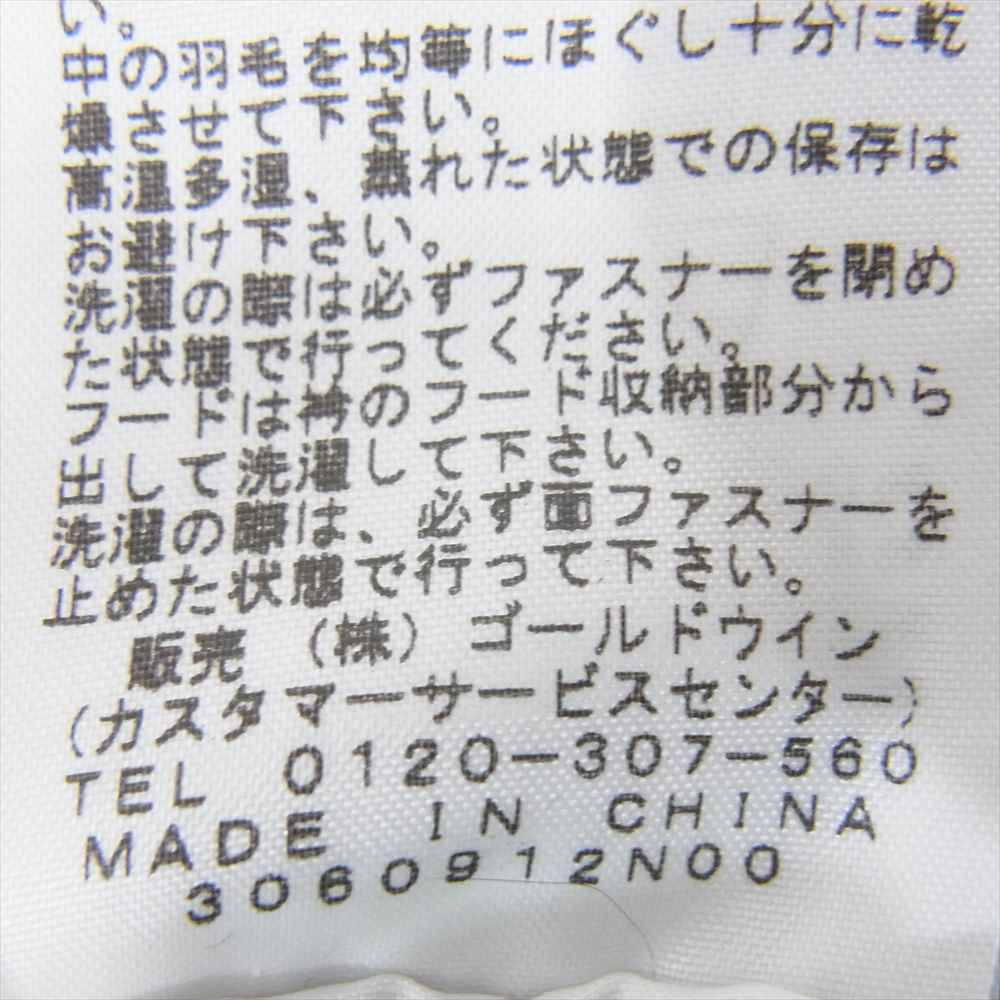 い。
中の羽毛を均等にほぐし十分に乾
燥させて下さい。
高温多湿、蒸れた状態での保存は
お避け下さい。
洗濯の際は必ずファスナーを閉め
た状態で行ってください。
フードは衿のフード収納部分から
出して洗濯して下さい。
洗濯の際は、必ず面ファスナーを
止めた状態で行って下さい。
販売 (株) ゴールドウイン
(カスタマーサービスセンター)
TEL 0120-307-560
MADE IN CHINA
3060912N00